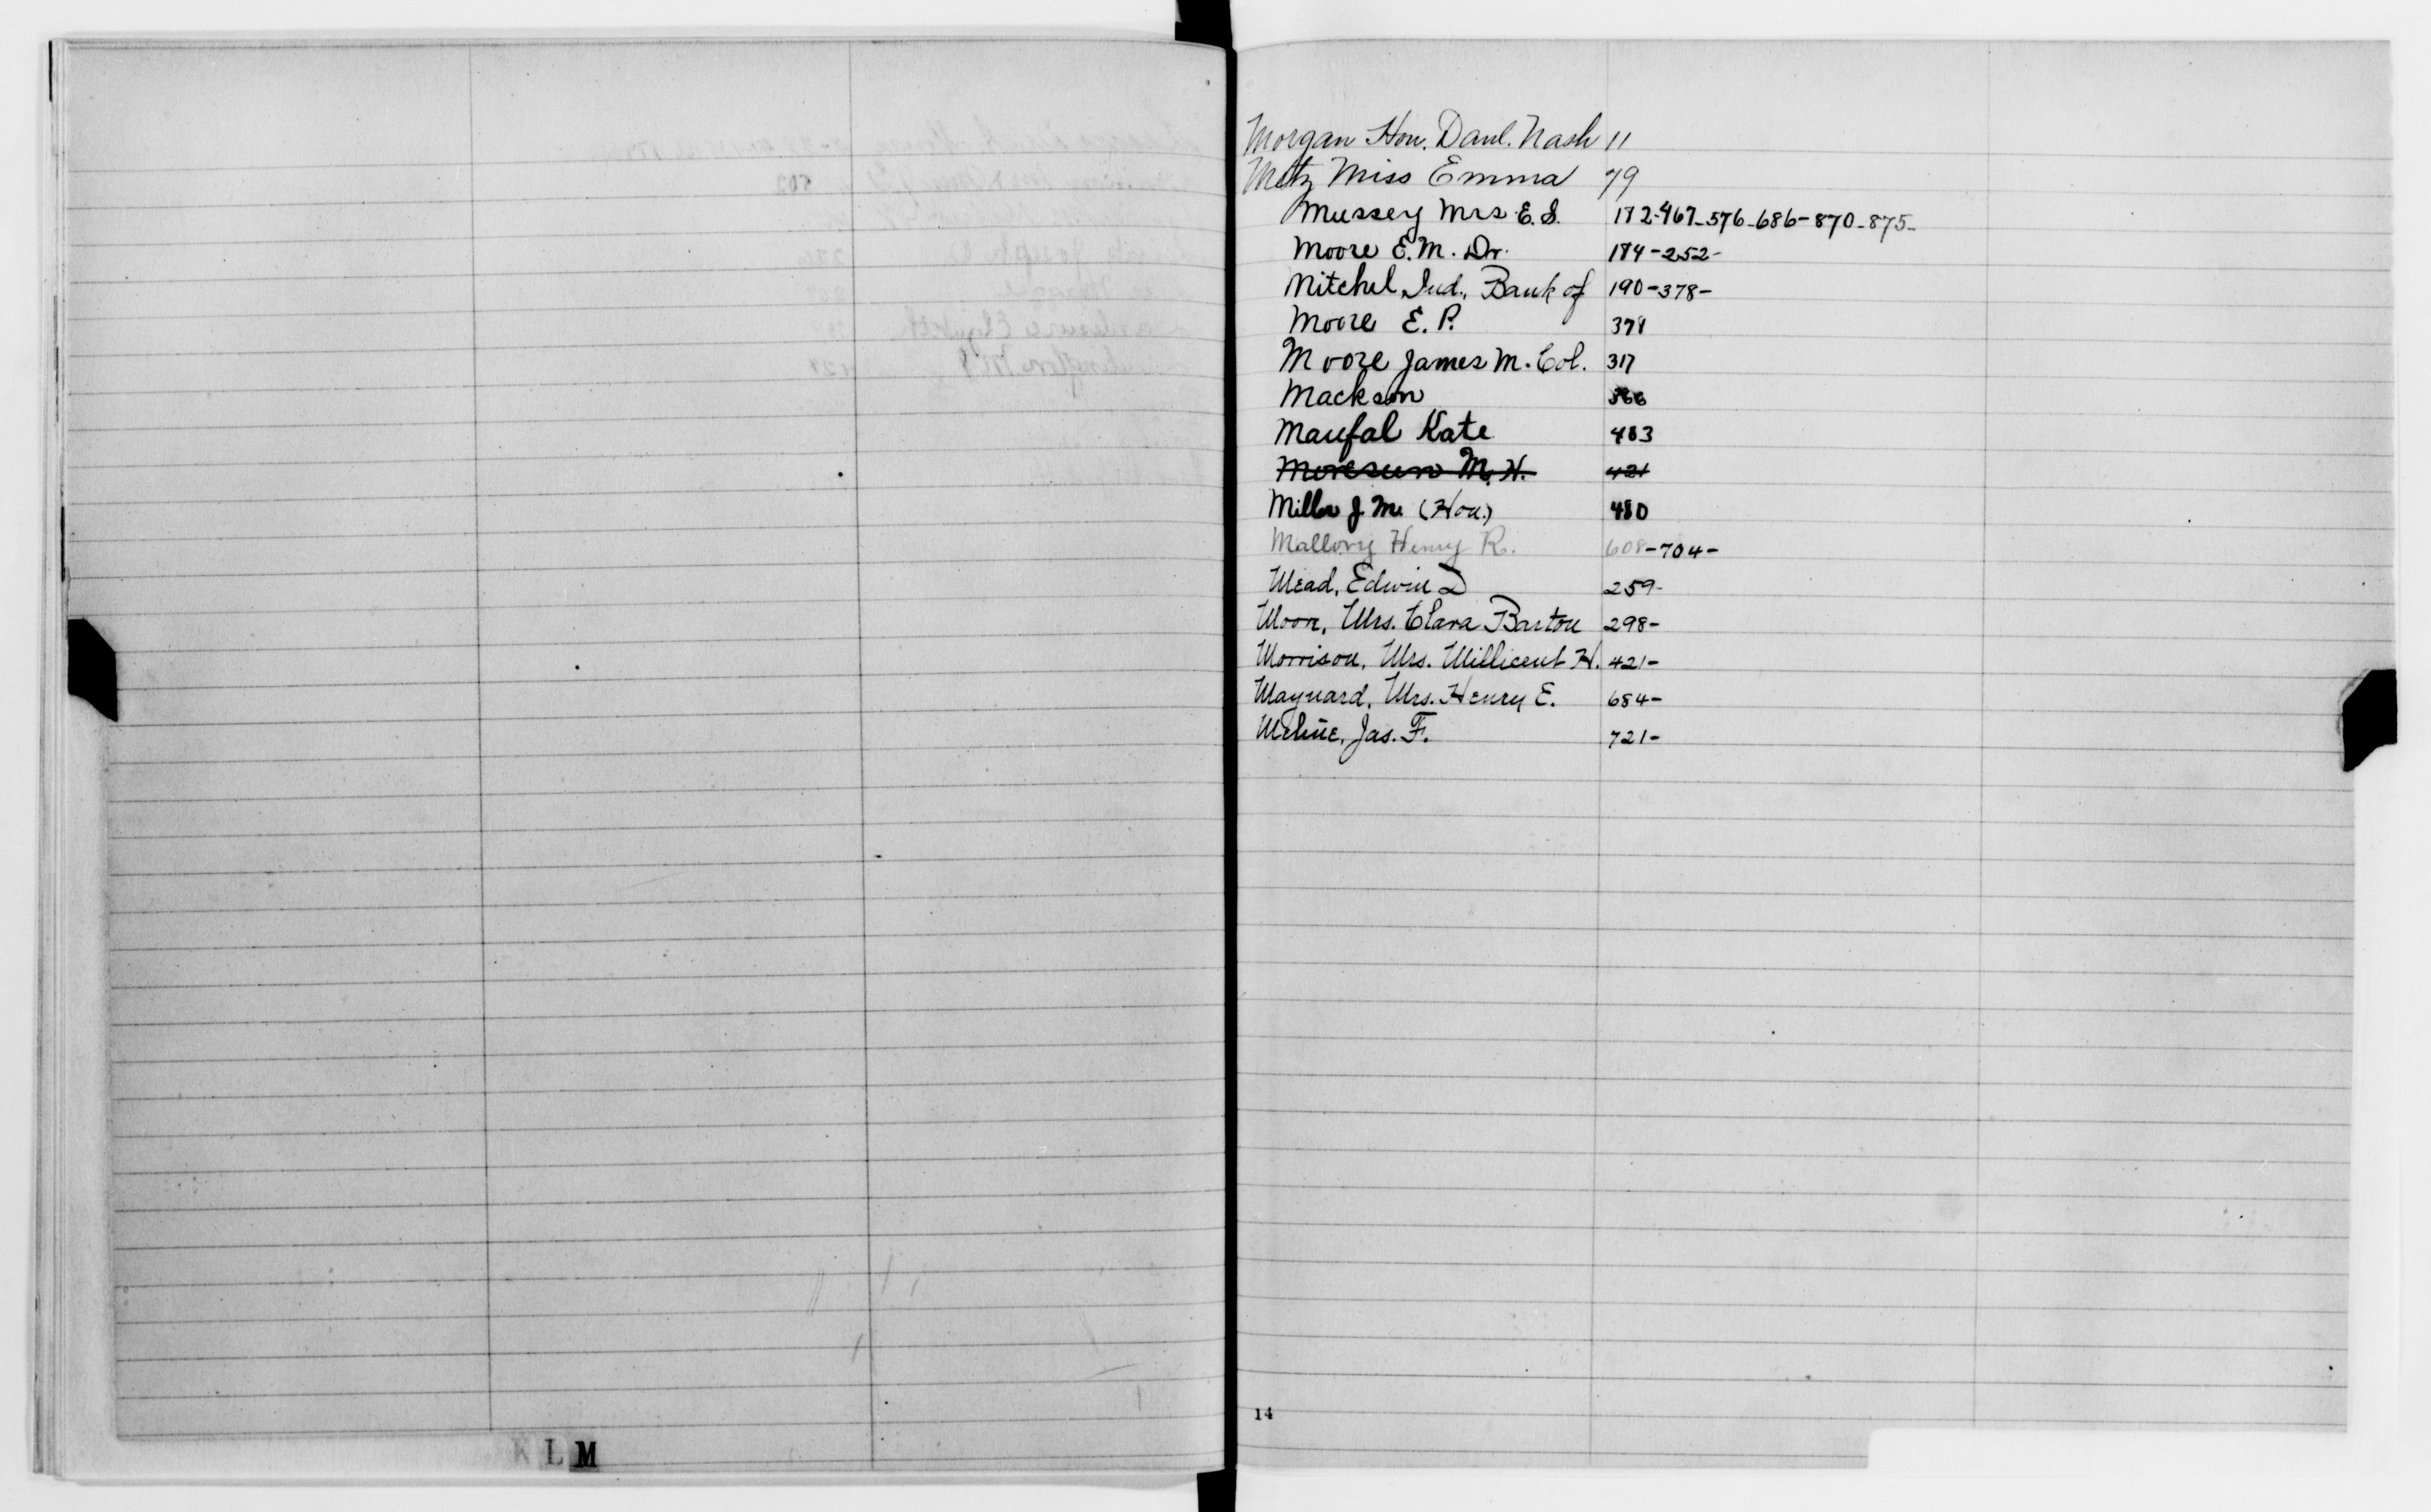 Morgan Hon. Danl. Nash 11
Metz Miss Emma 79
Mussey Mrs. E. S. 182-467-576-686-870-875-
Moore E. M. Dr. 184-252-
Mitchel, Ind., Bank of 190-378-
Moore E. P. 378
Moore James M. Col. 317
Mackson 366
Maufal Kate 483
Moresun M. H. 421
Miller J. M. (Hon.) 480
Mallory Henry R. 608-704-
Mead, Edwin D 259-
Moon, Mrs. Clara Barton 298-
Morrison, Mrs. Millicent H. 421-
Maynard, Mrs. Henry E. 684-
Meline, Jas. F. 721-
14
K L M